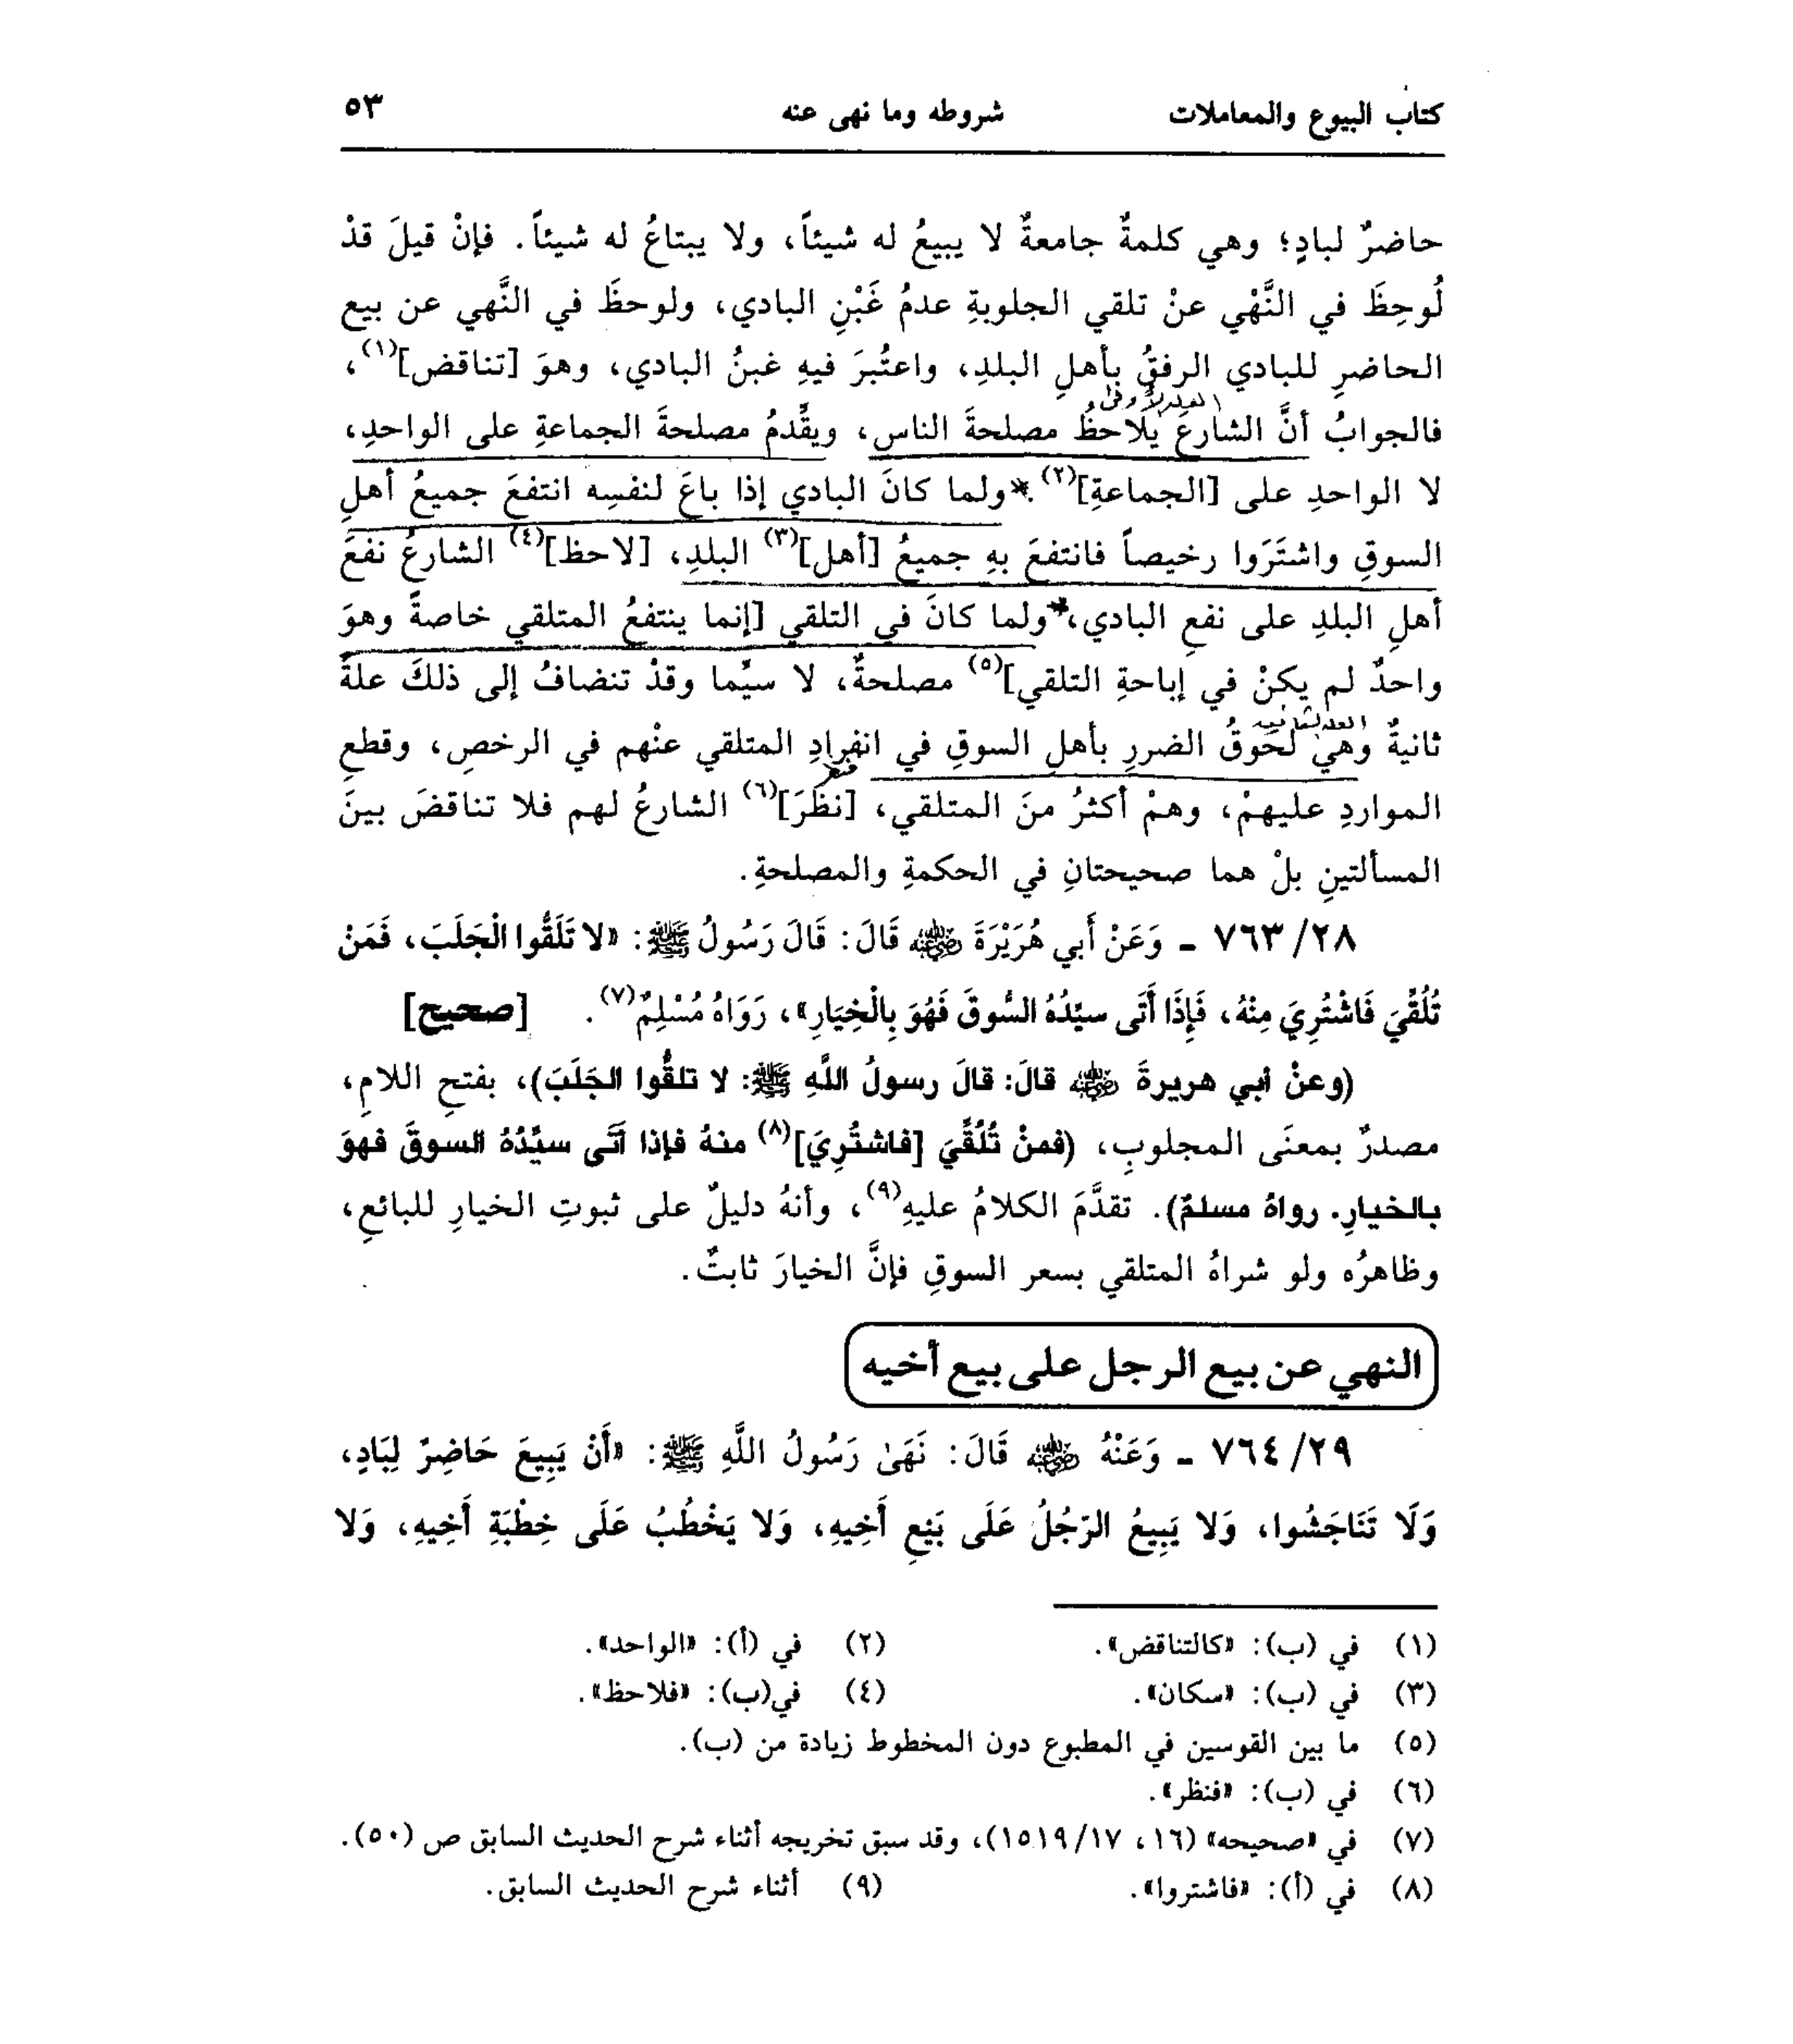 كتاب البيوع والمعاملات شروطه وما نهى عنه ٥٣
حاضرٌ لبادٍ؛ وهي كلمةٌ جامعةٌ لا يبيعُ له شيئاً، ولا يبتاعُ له شيئاً. فإنْ قيلَ قدْ
لُوحِظَ في النَّهْي عنْ تلقي الجلوبةِ عدمُ غَبْنِ البادي، ولوحظَ في النَّهي عن بيع
الحاضرِ للبادي الرفقُ بأهلِ البلدِ، واعتُبرَ فيهِ غبنُ البادي، وهوَ [تناقض](١)،
فالجوابُ أنَّ الشارعَ يلاحظُ مصلحةَ الناسِ، ويقدِّمُ مصلحةَ الجماعةِ على الواحدِ،
لا الواحدِ على [الجماعةِ](٢).*ولما كانَ البادي إذا باعَ لنفسِه انتفعَ جميعُ أهلِ
السوقِ واشتَرَوا رخيصاً فانتفعَ بهِ جميعُ [أهل](٣) البلدِ، [لاحظ](٤) الشارعُ نفعَ
أهلِ البلدِ على نفعِ البادي،*ولما كانَ في التلقي [إنما ينتفعُ المتلقي خاصةً وهوَ
واحدٌ لم يكنْ في إباحةِ التلقي](٥) مصلحةٌ، لا سيَّما وقدْ تنضافُ إلى ذلكَ علةٌ
العلة الثانية
ثانيةٌ وهي لحوقُ الضررِ بأهلِ السوقِ في انفرادِ المتلقي عنْهم في الرخصِ، وقطعِ
المواردِ عليهمْ، وهمْ أكثرُ منَ المتلقي، [نظَرَ](٦) الشارعُ لهم فلا تناقضَ بينَ
المسألتينِ بلْ هما صحيحتانِ في الحكمةِ والمصلحةِ.
٢٨/ ٧٦٣ ـ وَعَنْ أَبي هُرَيْرَةَ رضي الله عنه قَالَ: قَالَ رَسُولُ ﷺ: «لا تَلَقُّوا الْجَلَبَ، فَمَنْ
تُلُقِّيَ فَاشْتُرِيَ مِنْهُ، فَإِذَا أَتَى سيِّدُهُ السُّوقَ فَهُوَ بِالْخِيَارِ»، رَوَاهُ مُسْلِمٌ(٧). [صحيح]
(وعنْ أبي هريرةَ رضي الله عنه قالَ: قالَ رسولُ اللَّهِ ﷺ: لا تلقُّوا الجَلَبَ)، بفتحِ اللامِ،
مصدرٌ بمعنَى المجلوبِ، (فمنْ تُلُقِّيَ [فاشتُرِيَ](٨) منهُ فإذا أتَى سيِّدُهُ السوقَ فهوَ
بالخيارِ. رواهُ مسلمٌ). تقدَّمَ الكلامُ عليهِ(٩)، وأنهُ دليلٌ على ثبوتِ الخيارِ للبائعِ،
وظاهرُه ولو شراهُ المتلقي بسعر السوقِ فإنَّ الخيارَ ثابتٌ.
النهي عن بيع الرجل على بيع أخيه
٢٩/ ٧٦٤ ـ وَعَنْهُ رضي الله عنه قَالَ: نَهَىٰ رَسُولُ اللَّهِ ﷺ: «أَنْ يَبِيعَ حَاضِرٌ لِبَادٍ،
وَلَا تَنَاجَشُوا، وَلا يَبِيعُ الرّجُلُ عَلَى بَيْعِ أَخِيهِ، وَلا يَخْطُبُ عَلَى خِطْبَةِ أَخِيهِ، وَلا
(١) في (ب): «كالتناقض». (٢) في (أ): «الواحد».
(٣) في (ب): «سكان». (٤) في(ب): «فلاحظ».
(٥) ما بين القوسين في المطبوع دون المخطوط زيادة من (ب).
(٦) في (ب): «فنظر».
(٧) في «صحيحه» (١٦، ١٧/ ١٥١٩)، وقد سبق تخريجه أثناء شرح الحديث السابق ص (٥٠).
(٨) في (أ): «فاشتروا». (٩) أثناء شرح الحديث السابق.